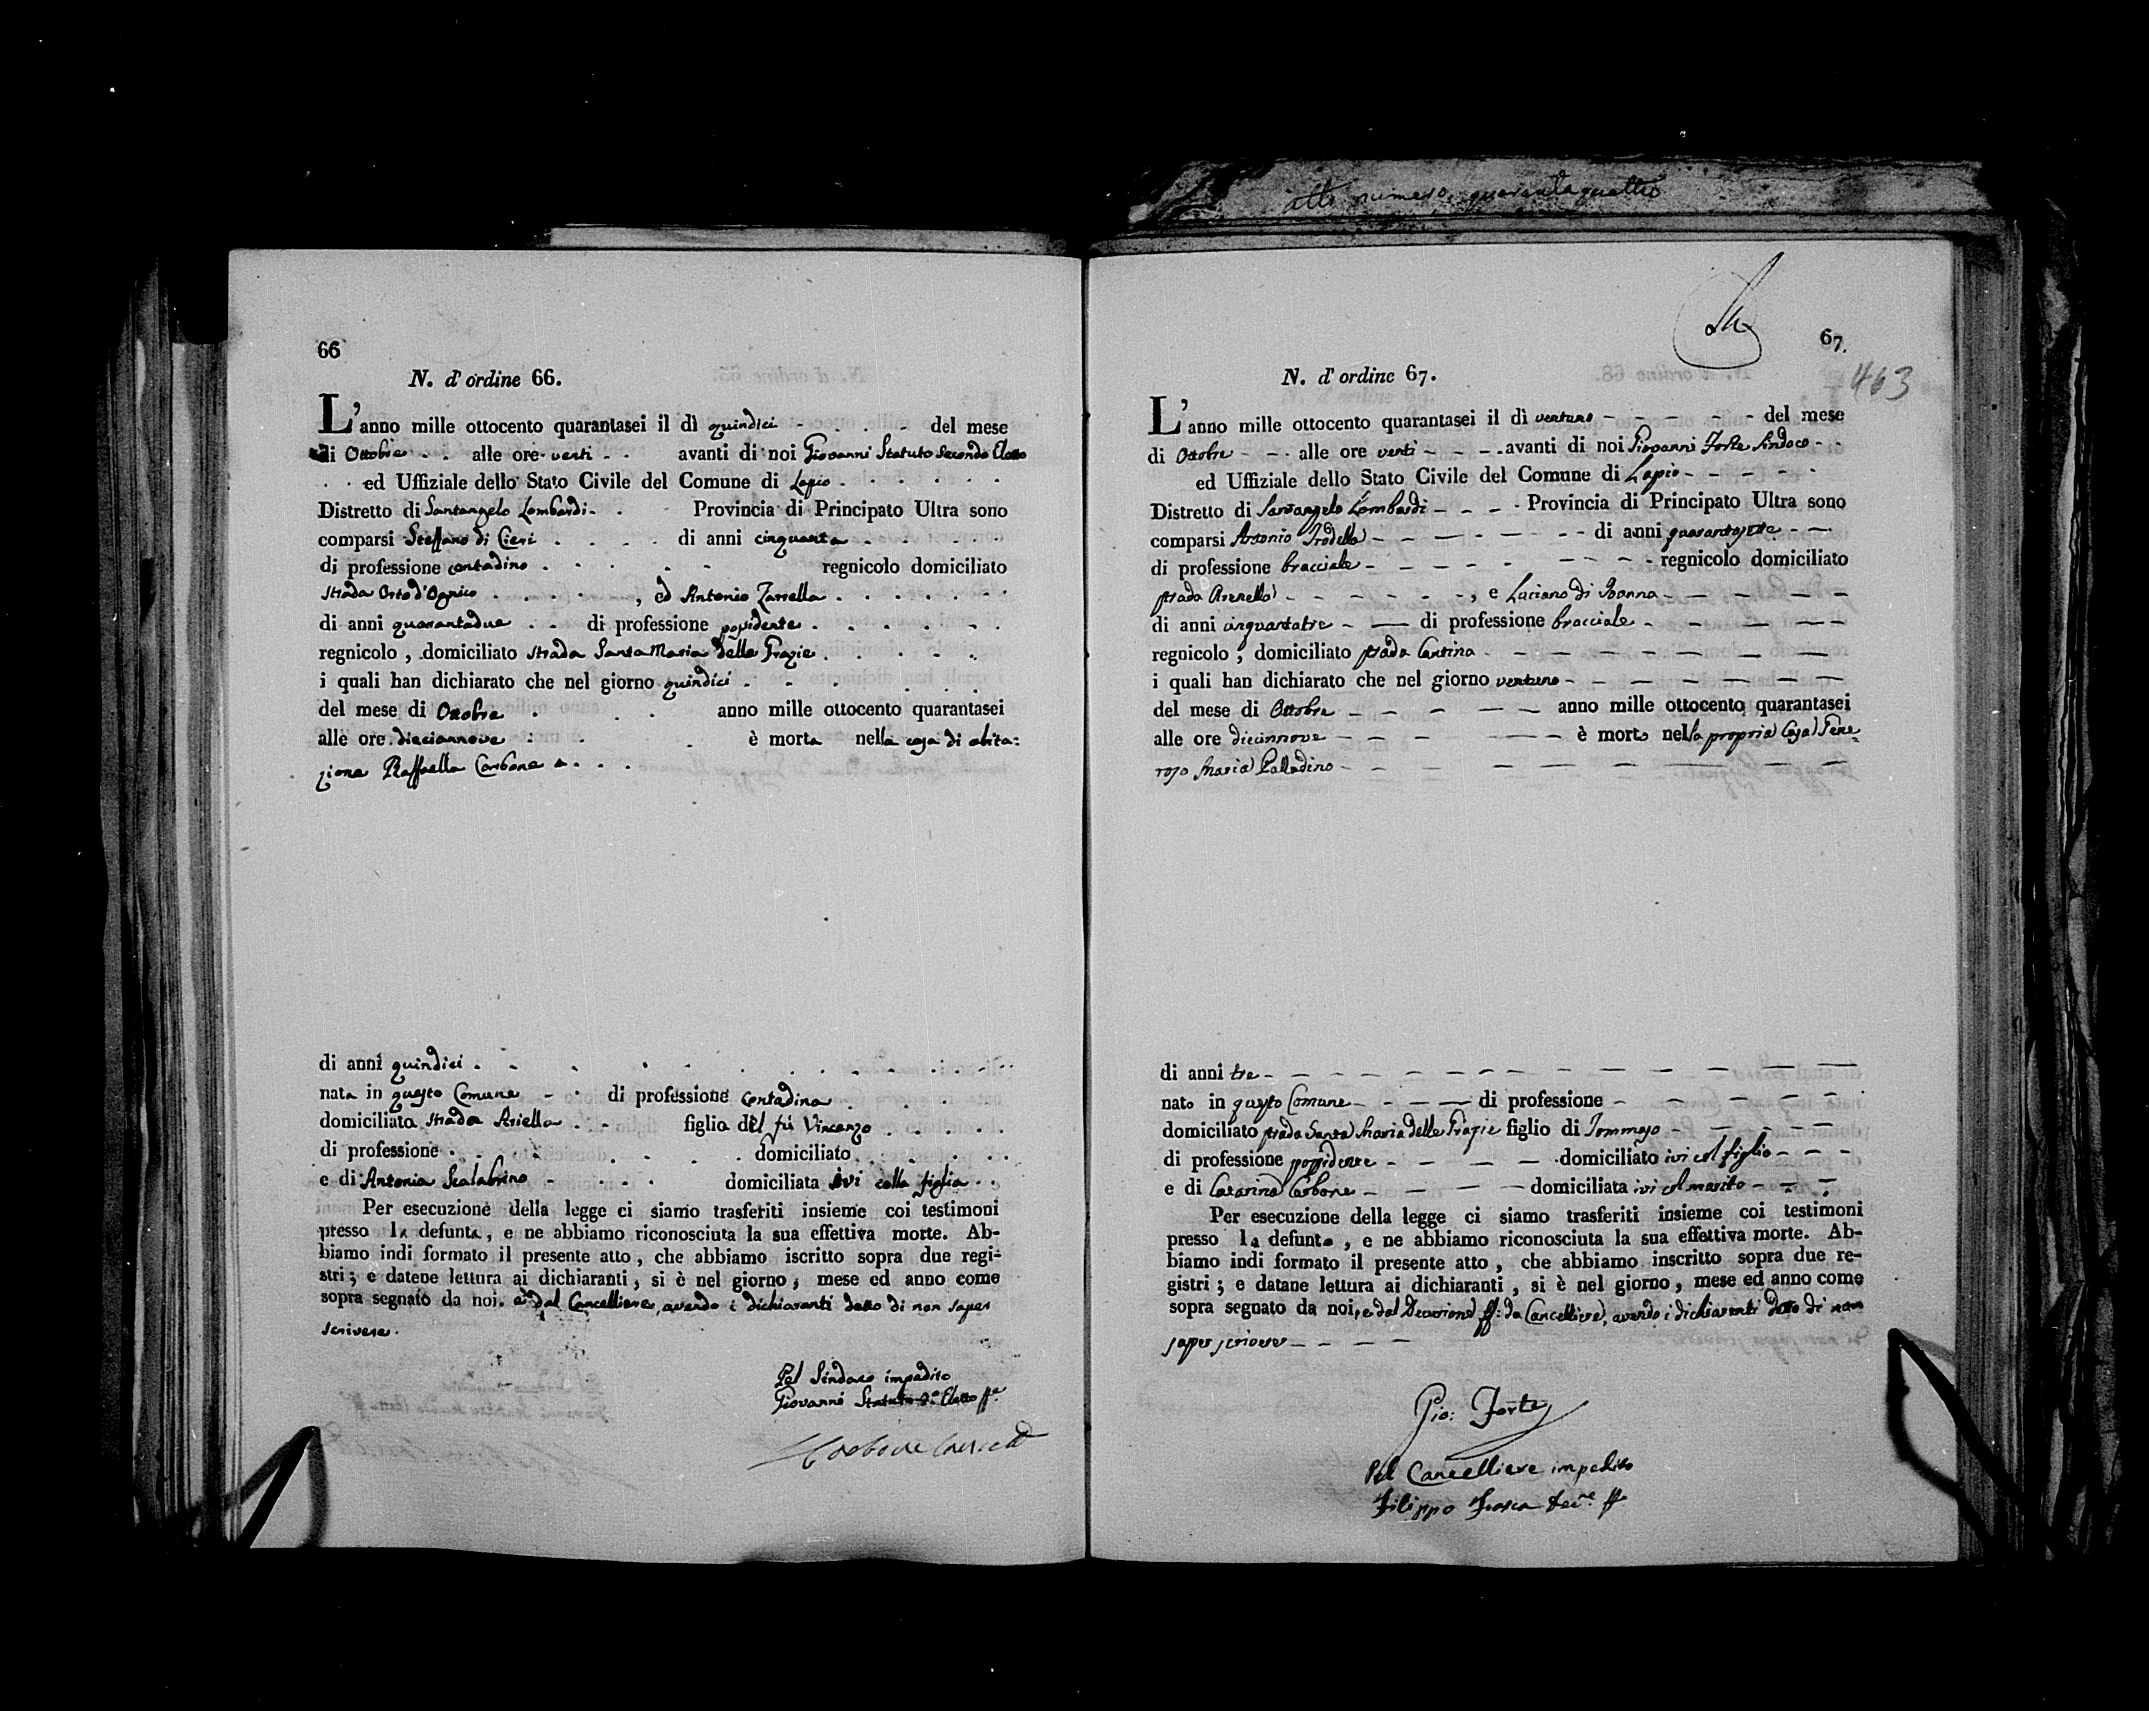 atto numero quarantaquattro
66
N. d'ordine 66.
L'anno mille ottocento quarantasei il dì quindici del mese
di Ottobre alle ore venti avanti di noi Giovanni Statuto Secondo Eletto
ed Uffiziale dello Stato Civile del Comune di Lapio
Distretto di Santangelo Lombardi Provincia di Principato Ultra sono
comparsi Steffano di Cieri di anni cinquanta
di professione contadino regnicolo domiciliato
strada Orto d'Ognico, ed Antonio Zarrella
di anni quarantadue di professione possidente
regnicolo, domiciliato strada Santa Maria delle Grazie
i quali han dichiarato che nel giorno quindici
del mese di Ottobre anno mille ottocento quarantasei
alle ore dieciannove è morta nella casa di abita=
zione Raffaella Carbone
di anni quindici
nata in questo Comune di professione contadina
domiciliata strada Ariella figlia del fù Vincenzo
di professione domiciliato
e di Antonia Scalabrino domiciliata ivi colla figlia
Per esecuzione della legge ci siamo trasferiti insieme coi testimoni
presso la defunta, e ne abbiamo riconosciuta la sua effettiva morte. Ab-
biamo indi formato il presente atto, che abbiamo iscritto sopra due regi-
stri; e datene lettura ai dichiaranti, si è nel giorno, mese ed anno come
sopra segnato da noi. e dal Cancelliere, avendo i dichiaranti detto di non saper
scrivere.
Pel Sindaco impedito
Giovanni Statuto 2.° Eletto ff.
Carbone
67.
463
N. d'ordine 67.
L'anno mille ottocento quarantasei il dì ventuno del mese
di Ottobre alle ore venti avanti di noi Giovanni Forte Sindaco
ed Uffiziale dello Stato Civile del Comune di Lapio
Distretto di Santangelo Lombardi Provincia di Principato Ultra sono
comparsi Antonio di anni quarantasette
di professione bracciale regnicolo domiciliato
strada Arenella, e Luciano di Ioanna
di anni cinquantatre di professione bracciale
regnicolo, domiciliato strada Cantina
i quali han dichiarato che nel giorno ventuno
del mese di Ottobre anno mille ottocento quarantasei
alle ore diciannove è morto nella propria casa Gene=
roso Maria Palladino
di anni tre
nato in questo Comune di professione
domiciliato strada Santa Maria delle Grazie figlio di Tommaso
di professione possidente domiciliato ivi col figlio
e di Catarina Carbone domiciliata ivi col marito
Per esecuzione della legge ci siamo trasferiti insieme coi testimoni
presso la defunto, e ne abbiamo riconosciuta la sua effettiva morte. Ab-
biamo indi formato il presente atto, che abbiamo inscritto sopra due re-
gistri; e datane lettura ai dichiaranti, si è nel giorno, mese ed anno come
sopra segnato da noi, e dal Decurione ff: da Cancelliere, avendo i dichiaranti detto di non
saper scrivere
Gio: Forte
Pel Cancelliere impedito
Filippo Frasca Dec.ne ff